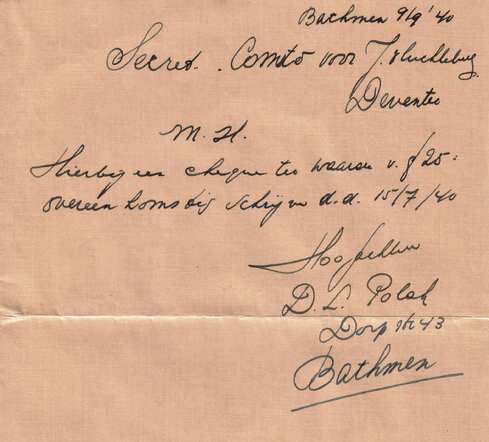 Bathmen 9/9 '40
Secret. Comité voor J. Vluchteling
Deventer
M. H.
Hierbij een cheque ter waarde v. f 25.-
overeenkomstig schrijven d.d. 15/7/40
Hoogachtend
D. L. Polak
Dorp str 43
Bathmen